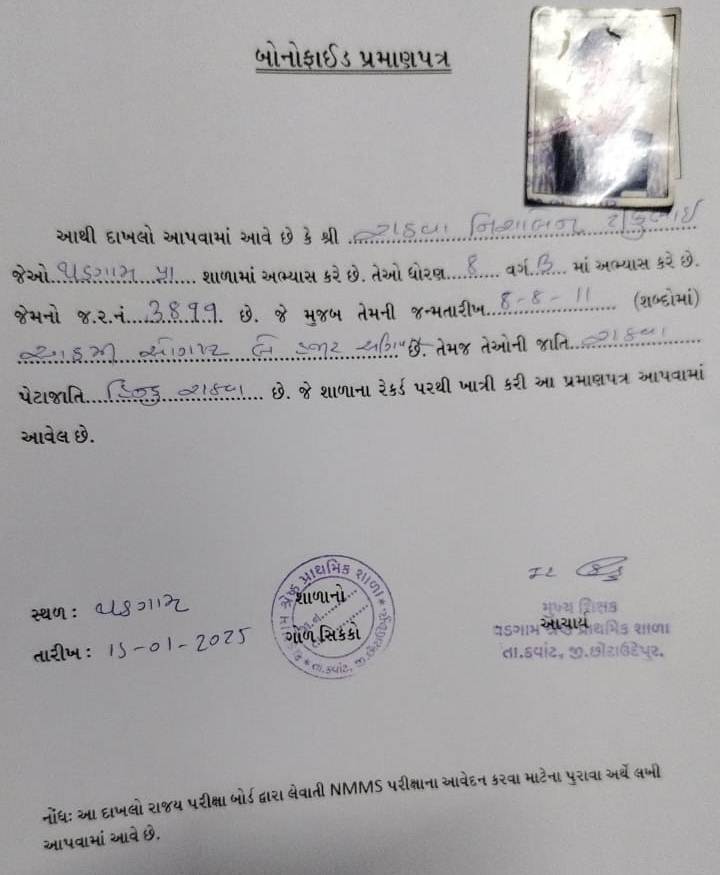 બોનોફાઈડ પ્રમાણપત્ર
આથી દાખલો આપવામાં આવે છે કે શ્રી રાઠવા નિશાબેન
જેઓ વડગામ પ્રા શાળામાં અભ્યાસ કરે છે. તેઓ ધોરણ 8 વર્ગ B માં અભ્યાસ કરે છે.
જેમનો જ.ર.નં. 3899 છે. જે મુજબ તેમની જન્મતારીખ 8-8-11 (શબ્દોમાં)
આઠમી ઓગષ્ટ બે હજાર અગિયાર છે. તેમજ તેઓની જાતિ રાઠવા
પેટાજાતિ હિન્દુ રાઠવા છે. જે શાળાના રેકર્ડ પરથી ખાત્રી કરી આ પ્રમાણપત્ર આપવામાં
આવેલ છે.
સ્થળ : વડગામ
તારીખ : 15-01-2025
શાળાનો
ગોળ સિક્કો
મુખ્ય શિક્ષક
આચાર્ય
વડગામ પ્રાથમિક શાળા
તા.કવાંટ, જી.છોટાઉદેપુર.
નોંધ: આ દાખલો રાજય પરીક્ષા બોર્ડ દ્વારા લેવાતી NMMS પરીક્ષાના આવેદન કરવા માટેના પુરાવા અર્થે લખી
આપવામાં આવે છે.